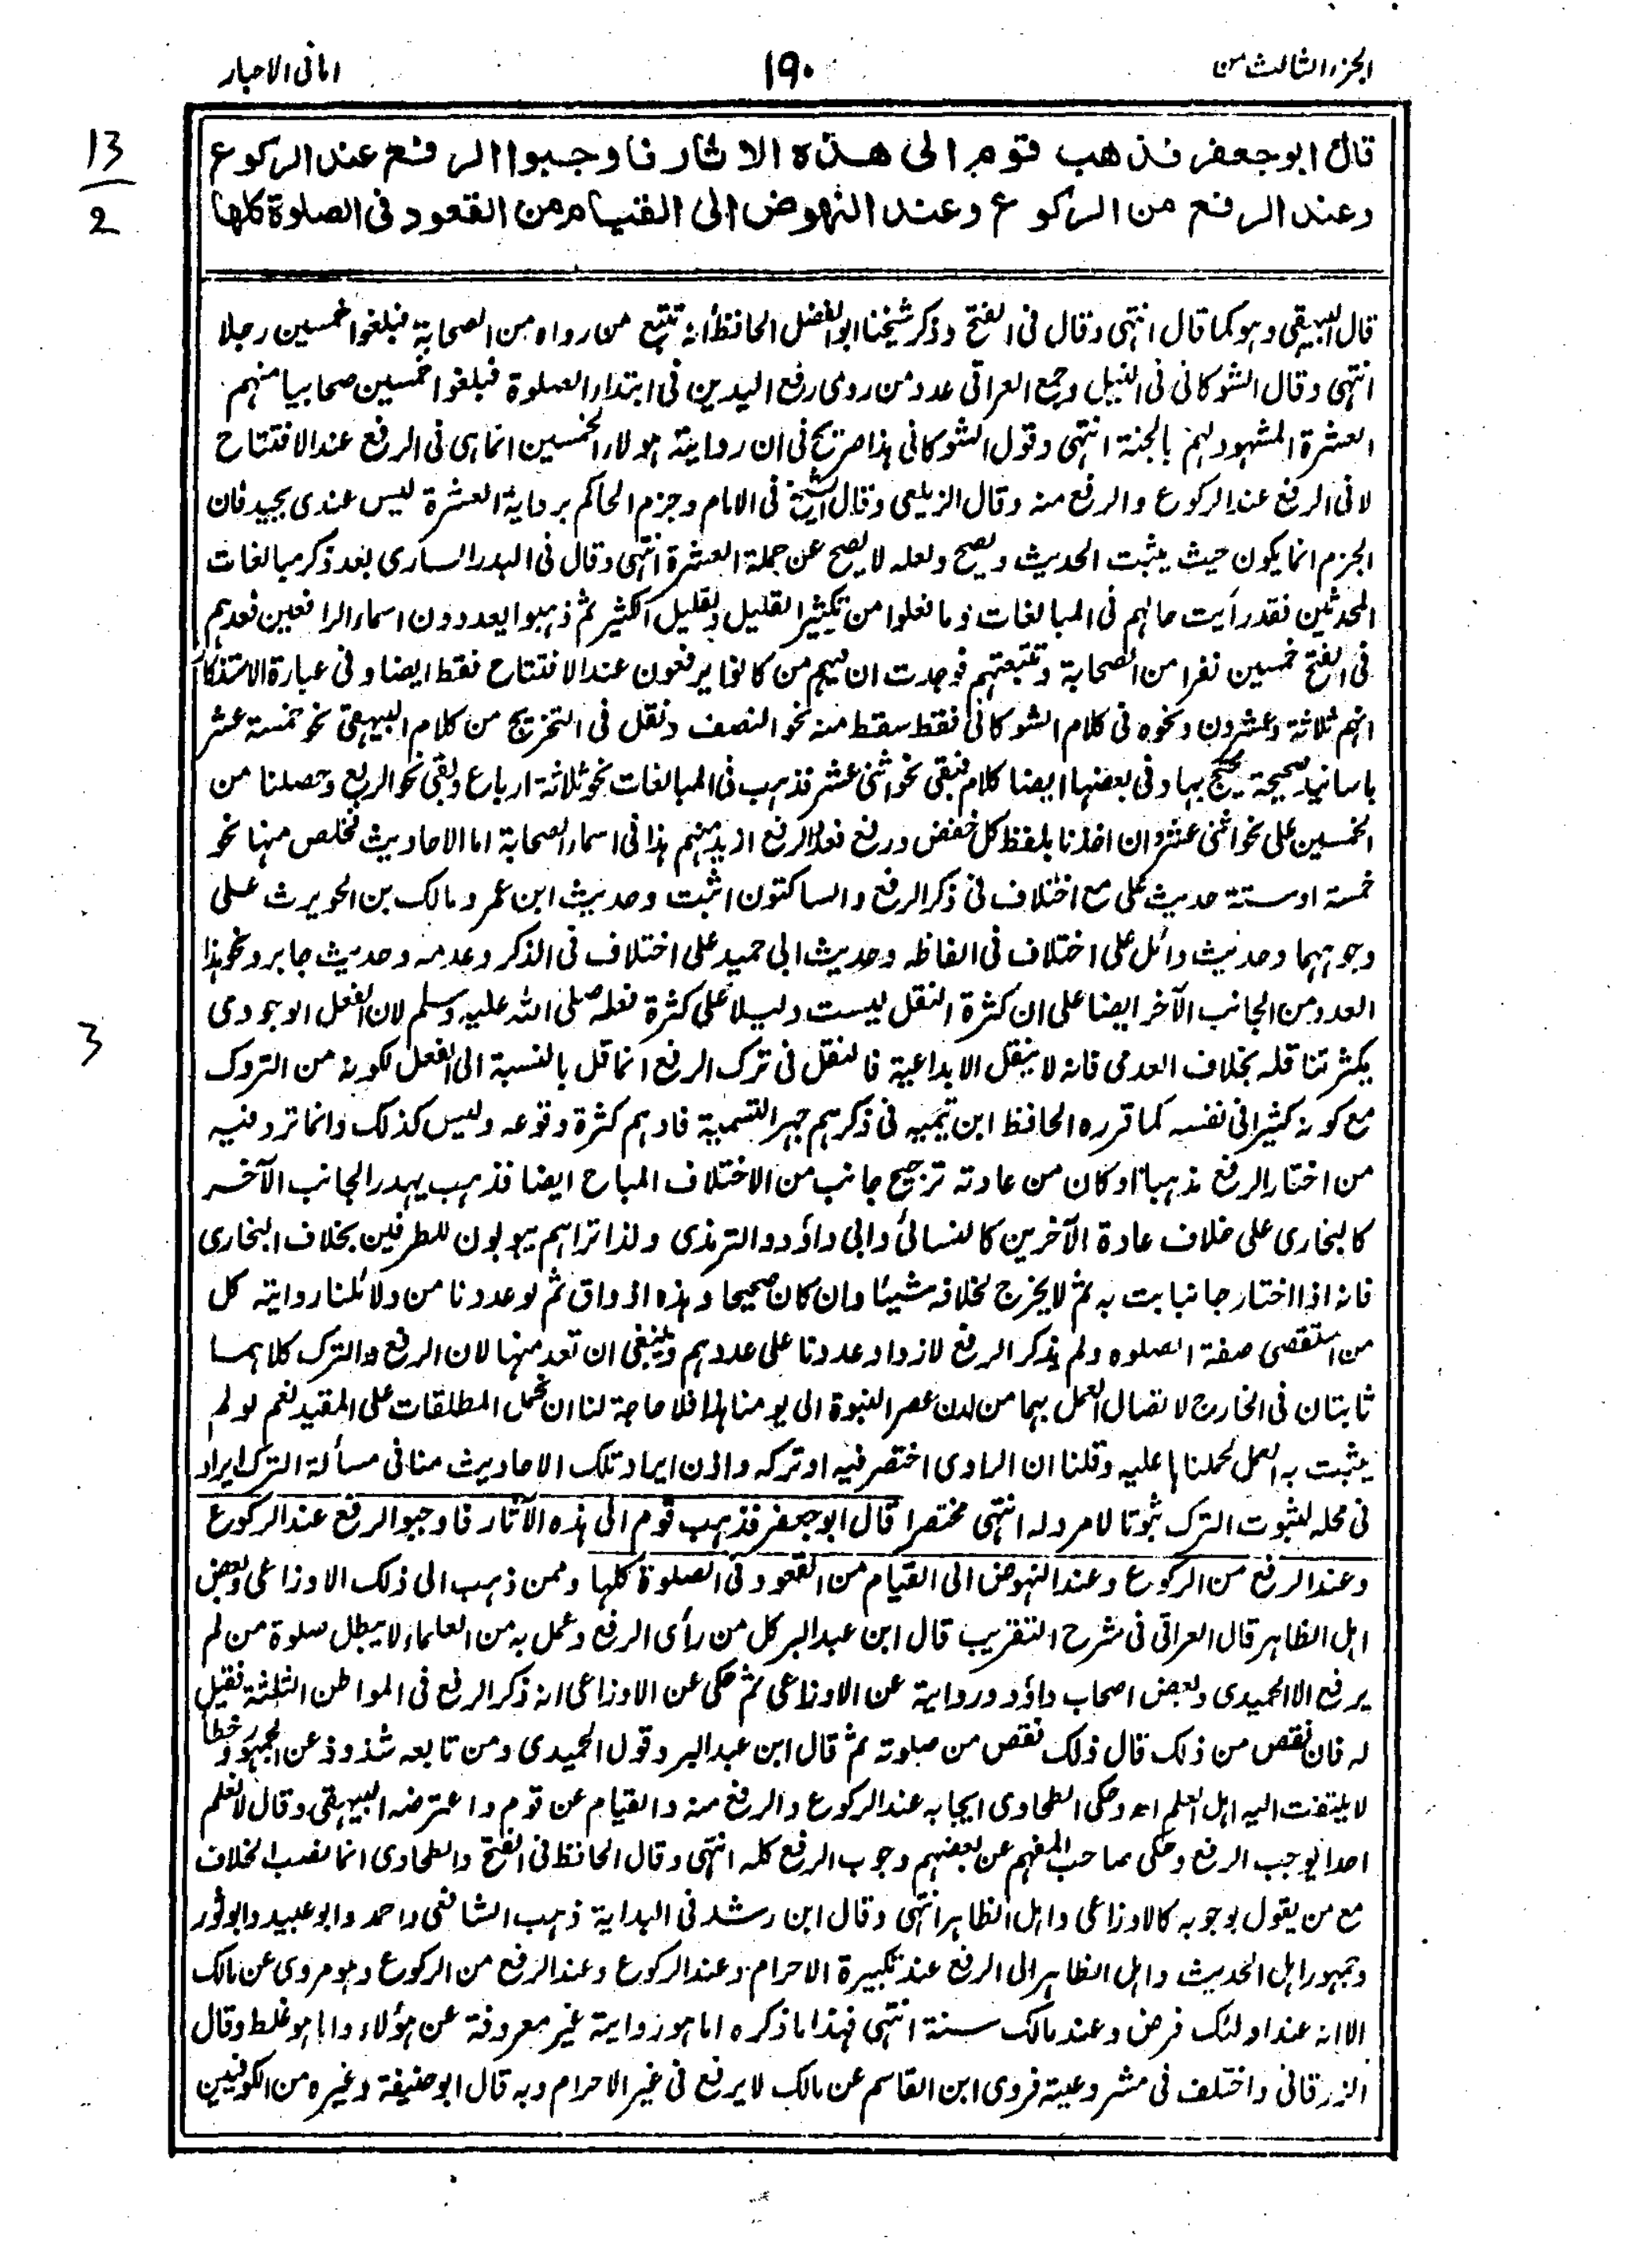 الجزء الثالث من
١٩٠
امانی الاحبار
13
2
قال ابو جعفر فذهب قوم الى هذه الاثار فاوجبوا الرفع عند الركوع
وعند الرفع من الركوع وعند النهوض الى القيام من القعود فى الصلوة كلها
قال البیہقی وہو کما قال انتہی وقال فی الفتح وذکر شیخنا ابو الفضل الحافظ انہ تتبع من رواہ من الصحابۃ فبلغوا خمسین رجلا
انتہی وقال الشوکانی فی النیل وجمع العراقی عدد من روی رفع الیدین فی ابتداء الصلوۃ فبلغوا خمسین صحابیا منہم
العشرۃ المشہود لہم بالجنۃ انتہی وقول الشوکانی ہذا صریح فی ان روایۃ ہولاء الخمسین انما ہی فی الرفع عند الافتتاح
لا فی الرفع عند الرکوع والرفع منہ وقال الزیلعی وقال الشیخ فی الامام وجزم الحاکم بروایۃ العشرۃ لیس عندی بجید فان
الجزم انما یکون حیث یثبت الحدیث ویصح ولعلہ لا یصح عن جملۃ العشرۃ انتہی وقال فی البدر الساری بعد ذکر مبالغات
المحدثین فقد رأیت حالہم فی المبالغات وما فعلوا من تکثیر القلیل وتقلیل الکثیر ثم ذہبوا یعددون اسماء الرافعین فعدہم
فی الفتح خمسین نفرا من الصحابۃ وتتبعتہم فوجدت ان فیہم من کانوا یرفعون عند الافتتاح فقط ایضا وفی عبارۃ الاستذکار
انہم ثلاثۃ وعشرون ونحوہ فی کلام الشوکانی فقط سقط منہ نحو النصف ونقل فی التخریج من کلام البیہقی نحو خمسۃ عشر
باسانید صحیحۃ یحتج بہا وفی بعضہا ایضا کلام فبقی نحو اثنی عشر فذہب فی المبالغات نحو ثلاثۃ ارباع وبقی نحو الربع وحصلنا من
الخمسین علی نحو اثنی عشر وان اخذنا بلفظ کل خفض ورفع فعلا الرفع ازید منہم ہذا فی اسماء الصحابۃ اما الاحادیث فخلص منہا نحو
خمسۃ او ستۃ حدیث علی مع اختلاف فی ذکر الرفع والساکتون اثبت وحدیث ابن عمر ومالک بن الحویرث علی
وجوہہما وحدیث وائل علی اختلاف فی الفاظہ وحدیث ابی حمید علی اختلاف فی الذکر وعدمہ وحدیث جابر ونحو ہذا
العدد من الجانب الآخر ایضا علی ان کثرۃ النقل لیست دلیلا علی کثرۃ فعلہ صلی اللہ علیہ وسلم لان الفعل الوجودی
3
یکثر تناقلہ بخلاف العدمی فانہ لا ینقل الا بداعیۃ فالنقل فی ترک الرفع انما قل بالنسبۃ الی الفعل لکونہ من التروک
مع کونہ کثیرا فی نفسہ کما قررہ الحافظ ابن تیمیہ فی ذکرہم جہر التسمیۃ فاوہم کثرۃ وقوعہ ولیس کذلک وانما تردد فیہ
من اختار الرفع مذہبا او کان من عادتہ ترجیح جانب من الاختلاف المباح ایضا فذہب یہدر الجانب الآخر
کالبخاری علی خلاف عادۃ الآخرین کالنسائی وابی داؤد والترمذی ولذا تراہم یبوبون للطرفین بخلاف البخاری
فانہ اذا اختار جانبا بت بہ ثم لا یخرج لخلافہ شیئا وان کان صحیحا وہذہ اذواق ثم لو عددنا من دلائلنا روایۃ کل
من استقصی صفۃ الصلوۃ ولم یذکر الرفع لازداد عددنا علی عددہم وینبغی ان تعد منہا لان الرفع والترک کلاہما
ثابتان فی الخارج لاتصال العمل بہما من لدن عصر النبوۃ الی یومنا ہذا فلا حاجۃ لنا ان نحمل المطلقات علی المقید نعم لو لم
یثبت بہ العمل لحملناہا علیہ وقلنا ان الراوی اختصر فیہ او ترکہ واذن ایراد تلک الاحادیث منا فی مسألۃ الترک ایراد
فی محلہ لثبوت الترک ثبوتا لا مرد لہ انتہی مختصرا قال ابو جعفر فذہب قوم الی ہذہ الآثار فاوجبو الرفع عند الرکوع
وعند الرفع من الرکوع وعند النہوض الی القیام من القعود فی الصلوۃ کلہا وممن ذہب الی ذلک الاوزاعی وبعض
اہل الظاہر قال العراقی فی شرح التقریب قال ابن عبد البر کل من رأی الرفع وعمل بہ من العلماء لا یبطل صلوۃ من لم
یرفع الا الحمیدی وبعض اصحاب داؤد وروایۃ عن الاوزاعی ثم حکی عن الاوزاعی انہ ذکر الرفع فی المواطن الثلثۃ فقیل
لہ فان نقص من ذلک قال ذلک نقص من صلوتہ ثم قال ابن عبد البر وقول الحمیدی ومن تابعہ شذوذ عن الجمہور وخطأ
لا یلتفت الیہ اہل العلم اھ وحکی الطحاوی ایجابہ عند الرکوع والرفع منہ والقیام عن قوم واعترضہ البیہقی وقال لا نعلم
احدا یوجب الرفع وحکی صاحب المفہم عن بعضہم وجوب الرفع کلہ انتہی وقال الحافظ فی الفتح والطحاوی انما نصب الخلاف
مع من یقول بوجوبہ کالاوزاعی واہل الظاہر انتہی وقال ابن رشد فی البدایۃ ذہب الشافعی واحمد وابو عبید وابو ثور
وجمہور اہل الحدیث واہل الظاہر الی الرفع عند تکبیرۃ الاحرام وعند الرکوع وعند الرفع من الرکوع وہو مروی عن مالک
الا انہ عند اولئک فرض وعند مالک سنۃ انتہی فہذا ما ذکرہ اما ہو روایۃ غیر معروفۃ عن ہؤلاء واما ہو غلط وقال
الزرقانی واختلف فی مشروعیتہ فروی ابن القاسم عن مالک لا یرفع فی غیر الاحرام وبہ قال ابو حنیفۃ وغیرہ من الکوفیین